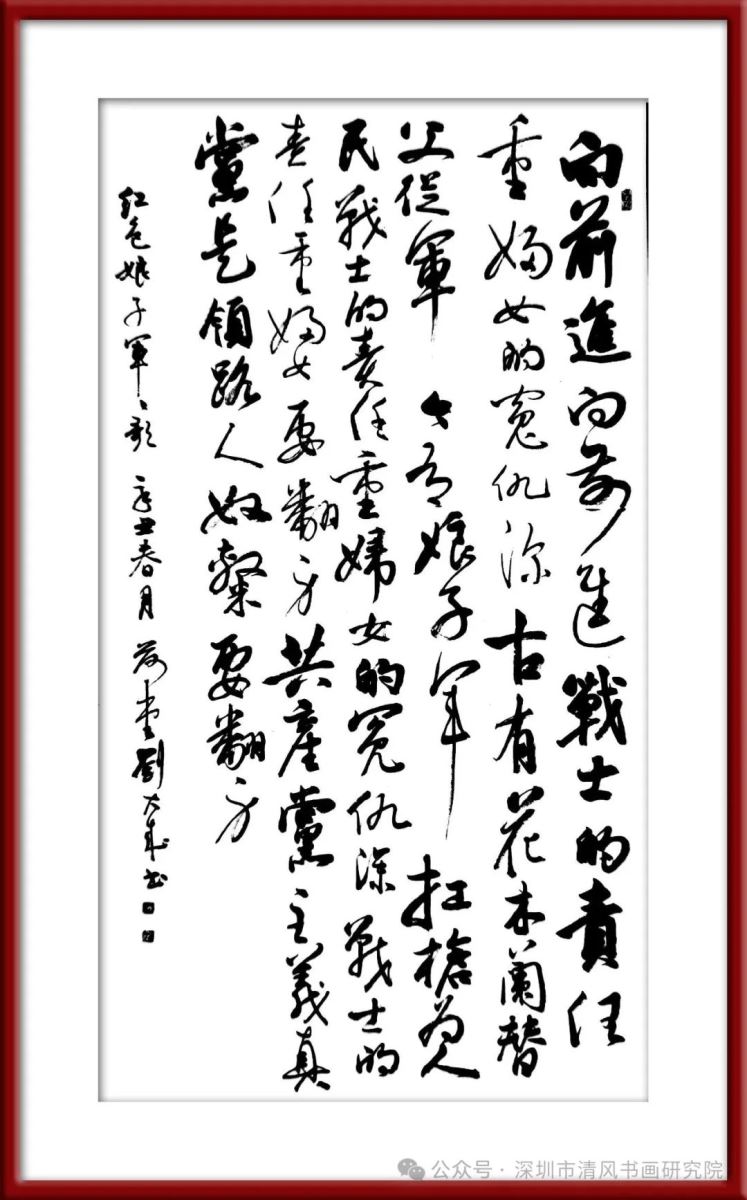 向前進向前進戰士的責任
重婦女的寃仇深古有花木蘭替
父從軍今有娘子軍扛槍為人
民戰士的責任重婦女的冤仇深戰士的
責任重婦女要翻身共產黨主義真
黨是領路人奴隸要翻身
紅色娘子軍〻歌 辛丑春月 堂劉大成書
公众号 · 深圳市清风书画研究院